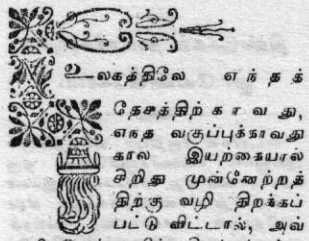 உலகத்திலே எந்தத்
தேசத்திற்காவது,
எநத வகுப்புக்காவது
கால இயற்கையால்
சிறிது முன்னேற்றத்
திற்கு வழி திறக்கப்
பட்டுவிட்டால், அவ்